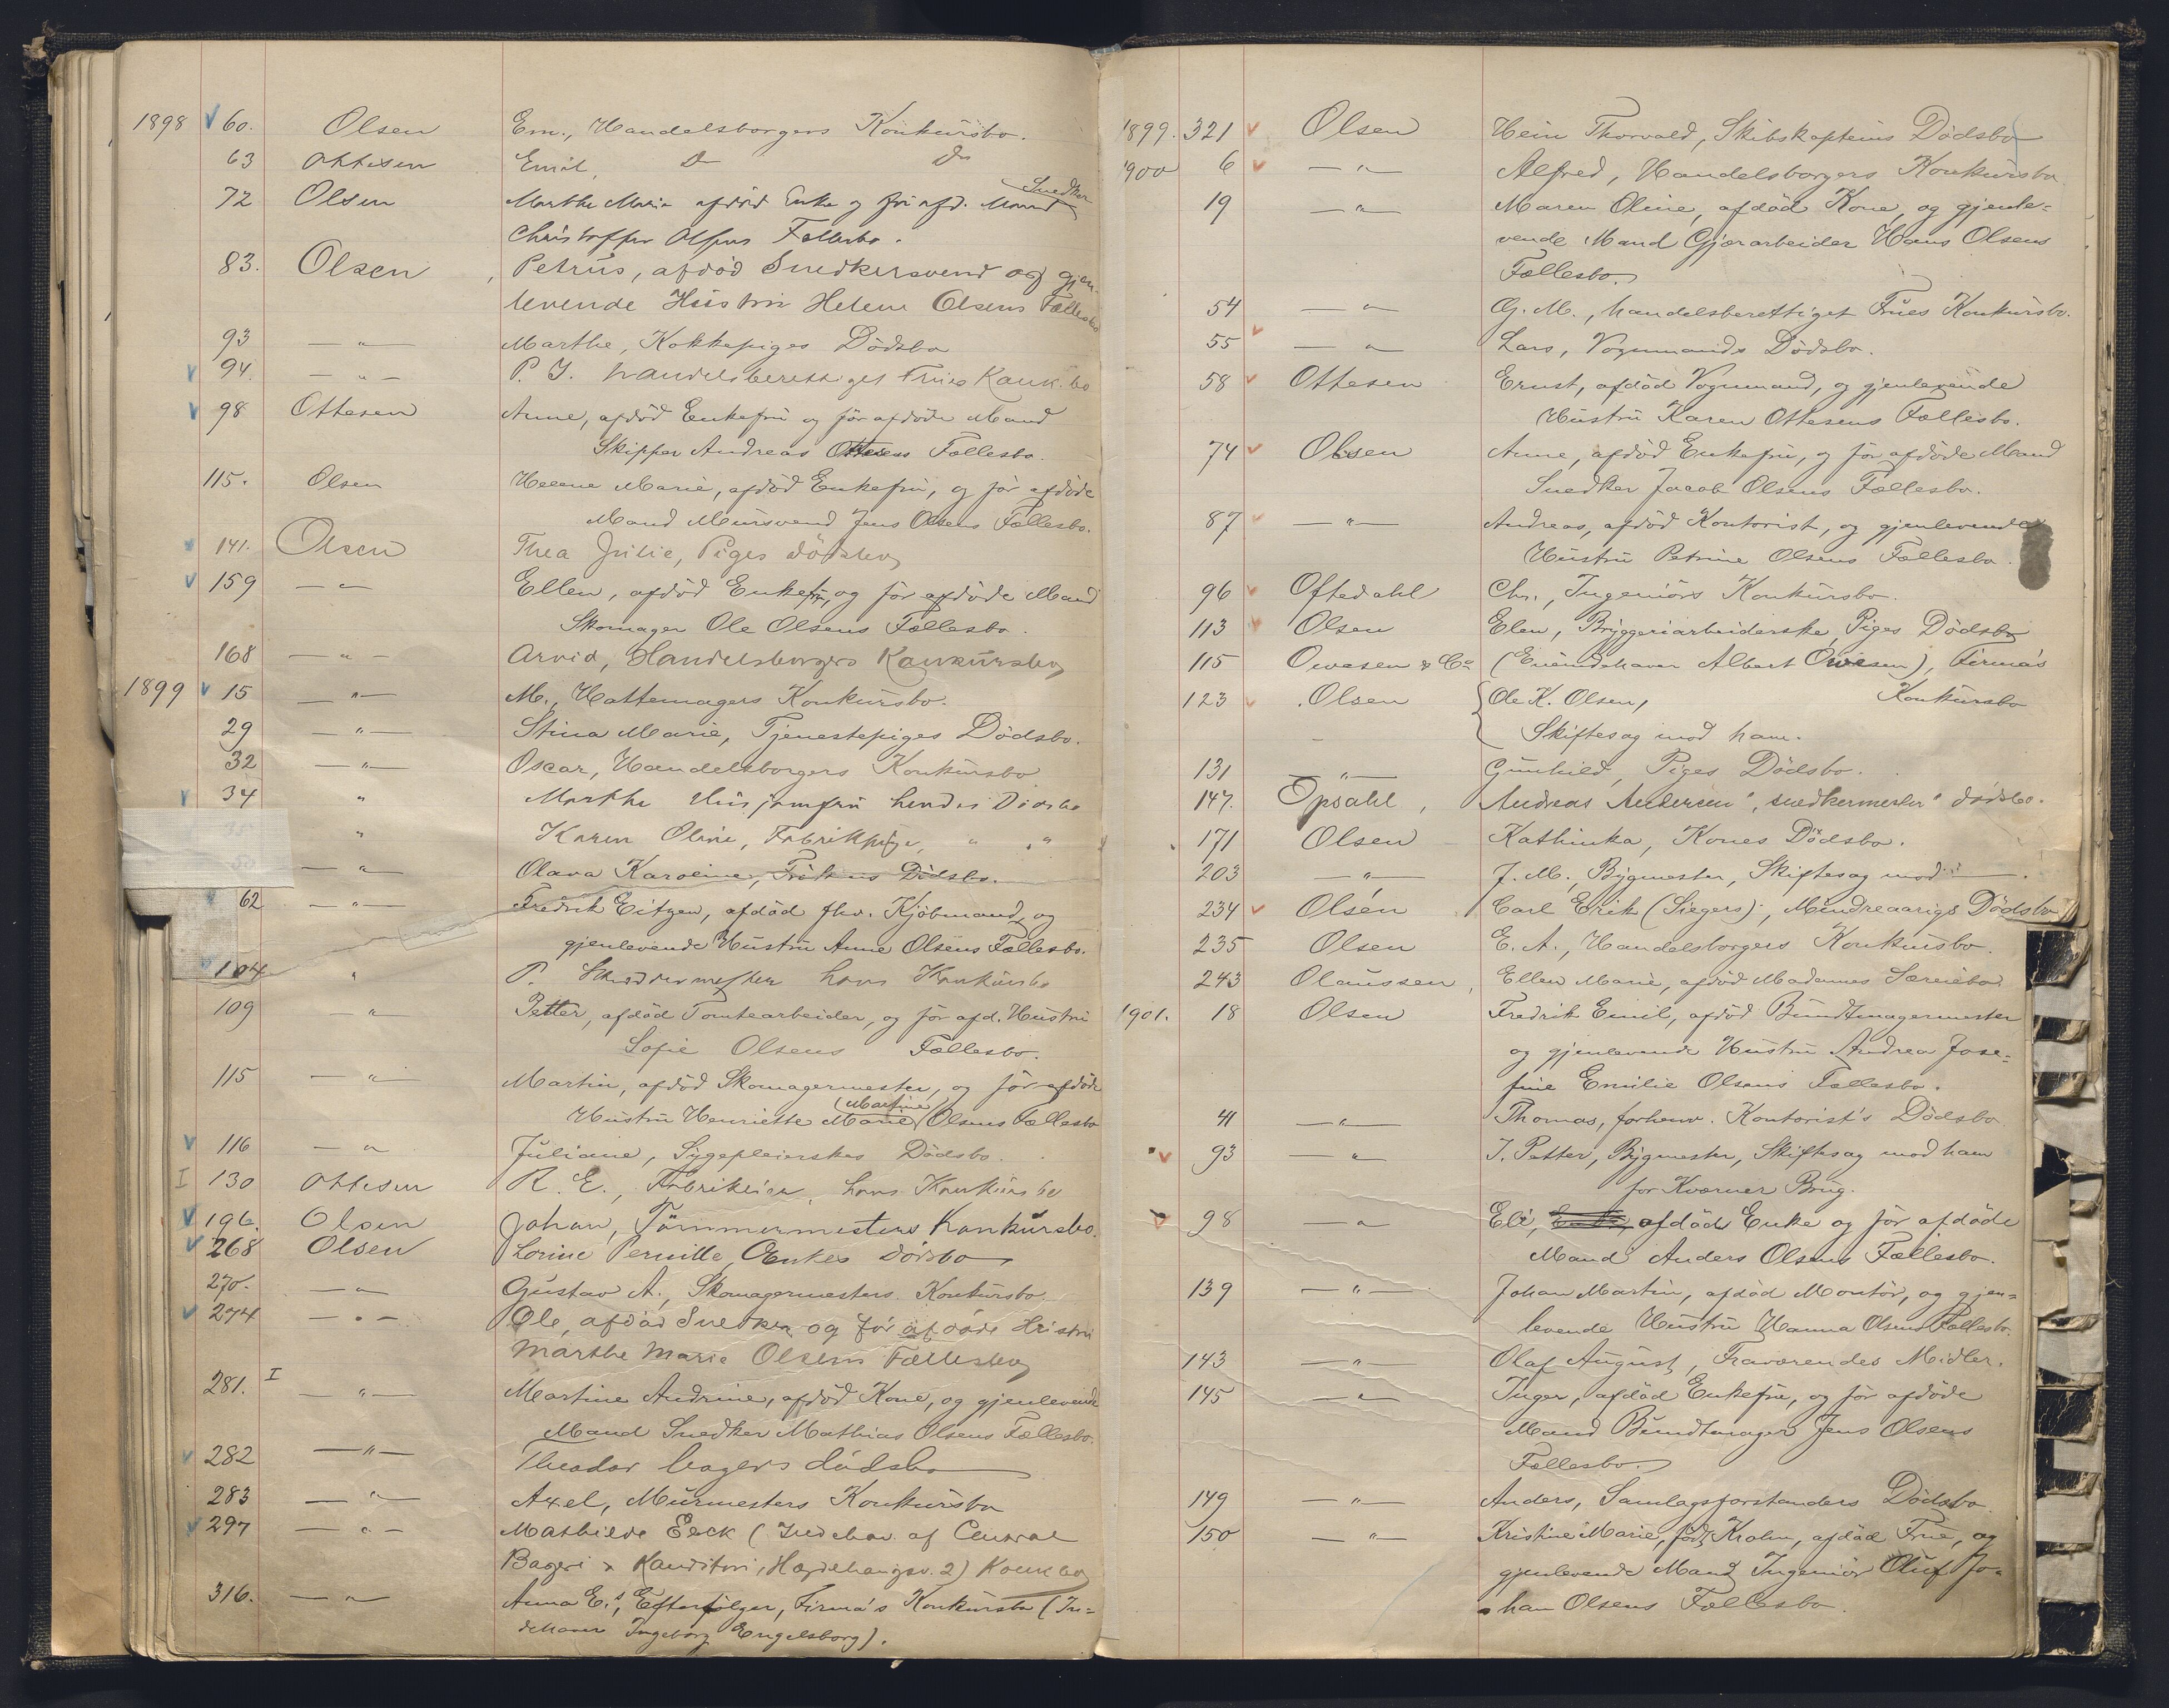 1898 60. Olsen Em., Handelsborgers Konkursbo.
63 Ottesen Emil, Do Do
72 Olsen Marthe Marie afdöd Enke og för afd. Mand Snedker
Christoffer Olsens Fællesbo.
83. Olsen, Petrus, afdöd Snedkersvend og gjen-
levende Hustru Helene Olsens Fællesbo
93 — " — Marthe, Kokkepiges Dödsbo
94. — " — P. J. handelsberettiget Frues Konk.bo
98 Ottesen Anne, afdöd Enkefru og för afdöde Mand
Skipper Andreas Ottesens Fællesbo.
115. Olsen Helene Marie, afdöd Enkefru, og för afdöde
Mand Mursvend Jens Olsens Fællesbo.
141. Olsen Thea Julie, Piges Dödsbo
159 — " — Ellen, afdöd Enkefru, og för afdöde Mand
Skomager Ole Olsens Fællesbo.
168 — " — Arvid, Handelsborgers Konkursbo
1899 15 — " — M., Hattemagers Konkursbo.
29 — " — Stina Marie, Tjenestepiges Dödsbo.
32 — " — Oscar, Handelsborgers Konkursbo
34 " Marthe Husjomfru hendes Dödsbo
" Karen Oline, Fabrikpige, " "
— " — Olava Karoline, Frökens Dödsbo.
62 — " — Fredrik Eitzen, afdöd fhv. Kjöbmand, og
gjenlevende Hustru Anne Olsens Fællesbo.
104 " P. Skræddermester hans Konkursbo
109 — " — Petter, afdöd Tomtearbeider, og för afd. Hustru
Sofie Olsens Fællesbo.
115 — " — Martin, afdöd Skomagermester, og för afdöde
(Martine)
Hustru Henriette Marie Olsens Fællesbo
116 — " — Juliane, Sygepleierskes Dödsbo.
I 130 Ottesen R. E., Fabrikeier, hans Konkursbo
196. Olsen Johan, Tömmermesters Konkursbo.
268 Olsen Lorine Pernille, Enkes Dödsbo
270. — " — Gustav A., Skomagermesters Konkursbo.
274 — " — Ole, afdöd Snedker, og för afdöde Hustru
Marthe Marie Olsens Fællesbo
281. I — " — Martine Andrine, afdöd Kone, og gjenlevende
Mand Snedker Mathias Olsens Fællesbo.
282 — " — Theodor bagers dödsbo
283 — " — Axel, Murmesters Konkursbo
297 — " — Mathilde Eeck (Indehav. af Central
Bageri & Konditori, Hegdehaugsv. 2) Konk.bo
316. — " — Anna E.'s, Efterfölger, Firma's Konkursbo (In-
dehaver Ingeborg Engelsborg).
1899. 321 Olsen Hein Thorvald, Skibskapteins Dödsbo
1900 6 — " — Alfred, Handelsborgers Konkursbo
19 — " — Maren Oline, afdöd Kone, og gjenle-
vende Mand Gjörarbeider Hans Olsens
Fællesbo.
54 — " — G. M., handelsberettiget Frues Konkursbo.
55 — " — Lars, Vognmands Dödsbo.
58 Ottesen Ernst, afdöd Vognmand, og gjenlevende
Hustru Karen Ottesens Fællesbo.
74 Olsen Anne, afdöd Enkefru, og för afdöde Mand
Snedker Jacob Olsens Fællesbo.
87 — " — Andreas, afdöd Kontorist, og gjenlevende
Hustru Petrine Olsens Fællesbo.
96 Oftedahl Chr., Ingeniörs Konkursbo.
113 Olsen Elen, Bryggeriarbeiderske, Piges Dödsbo
115 Owesen & Co (Eneindehaver Albert Owesen), Firma's
Konkursbo
123 Olsen Ole K. Olsen,
Skiftesag mod ham.
131 — " — Gunhild, Piges Dödsbo.
147. Opsahl, Andreas Andersen, snedkermester dödsbo.
171 Olsen Kathinka, Kones Dödsbo.
203 — " — J. M., Bygmester, Skiftesag mod — " —.
234 Olsén Carl Erik (Siegers), Mindreaarigs Dödsbo
235 Olsen E. A., Handelsborgers Konkursbo.
243 Olaussen, Ellen Marie, afdöd Madames Særeiebo
1901. 18 Olsen Fredrik Emil, afdöd Bundtmagermester
og gjenlevende Hustru Andrea Jose-
fine Emilie Olsens Fællesbo.
41 — " — Thomas, forhenv. Kontorist's Dödsbo
93 — " — J. Petter, Bygmester, Skiftesag mod ham
for Kværner Brug.
98 — " — Eli, afdöd Enke og för afdöde
Mand Anders Olsens Fællesbo.
139 — " — Johan Martin, afdöd Montör, og gjen-
levende Hustru Hanna Olsens Fællesbo.
143 — " — Olaf August, Fraværendes Midler.
145 — " — Inger, afdöd Enkefru, og för afdöde
Mand Bundtmager Jens Olsens
Fællesbo.
149 — " — Anders, Samlagsforstanders Dödsbo
150 — " — Kristine Marie, född Krohn, afdöd Frue, og
gjenlevende Mand Ingeniör Oluf Jo-
han Olsens Fællesbo.